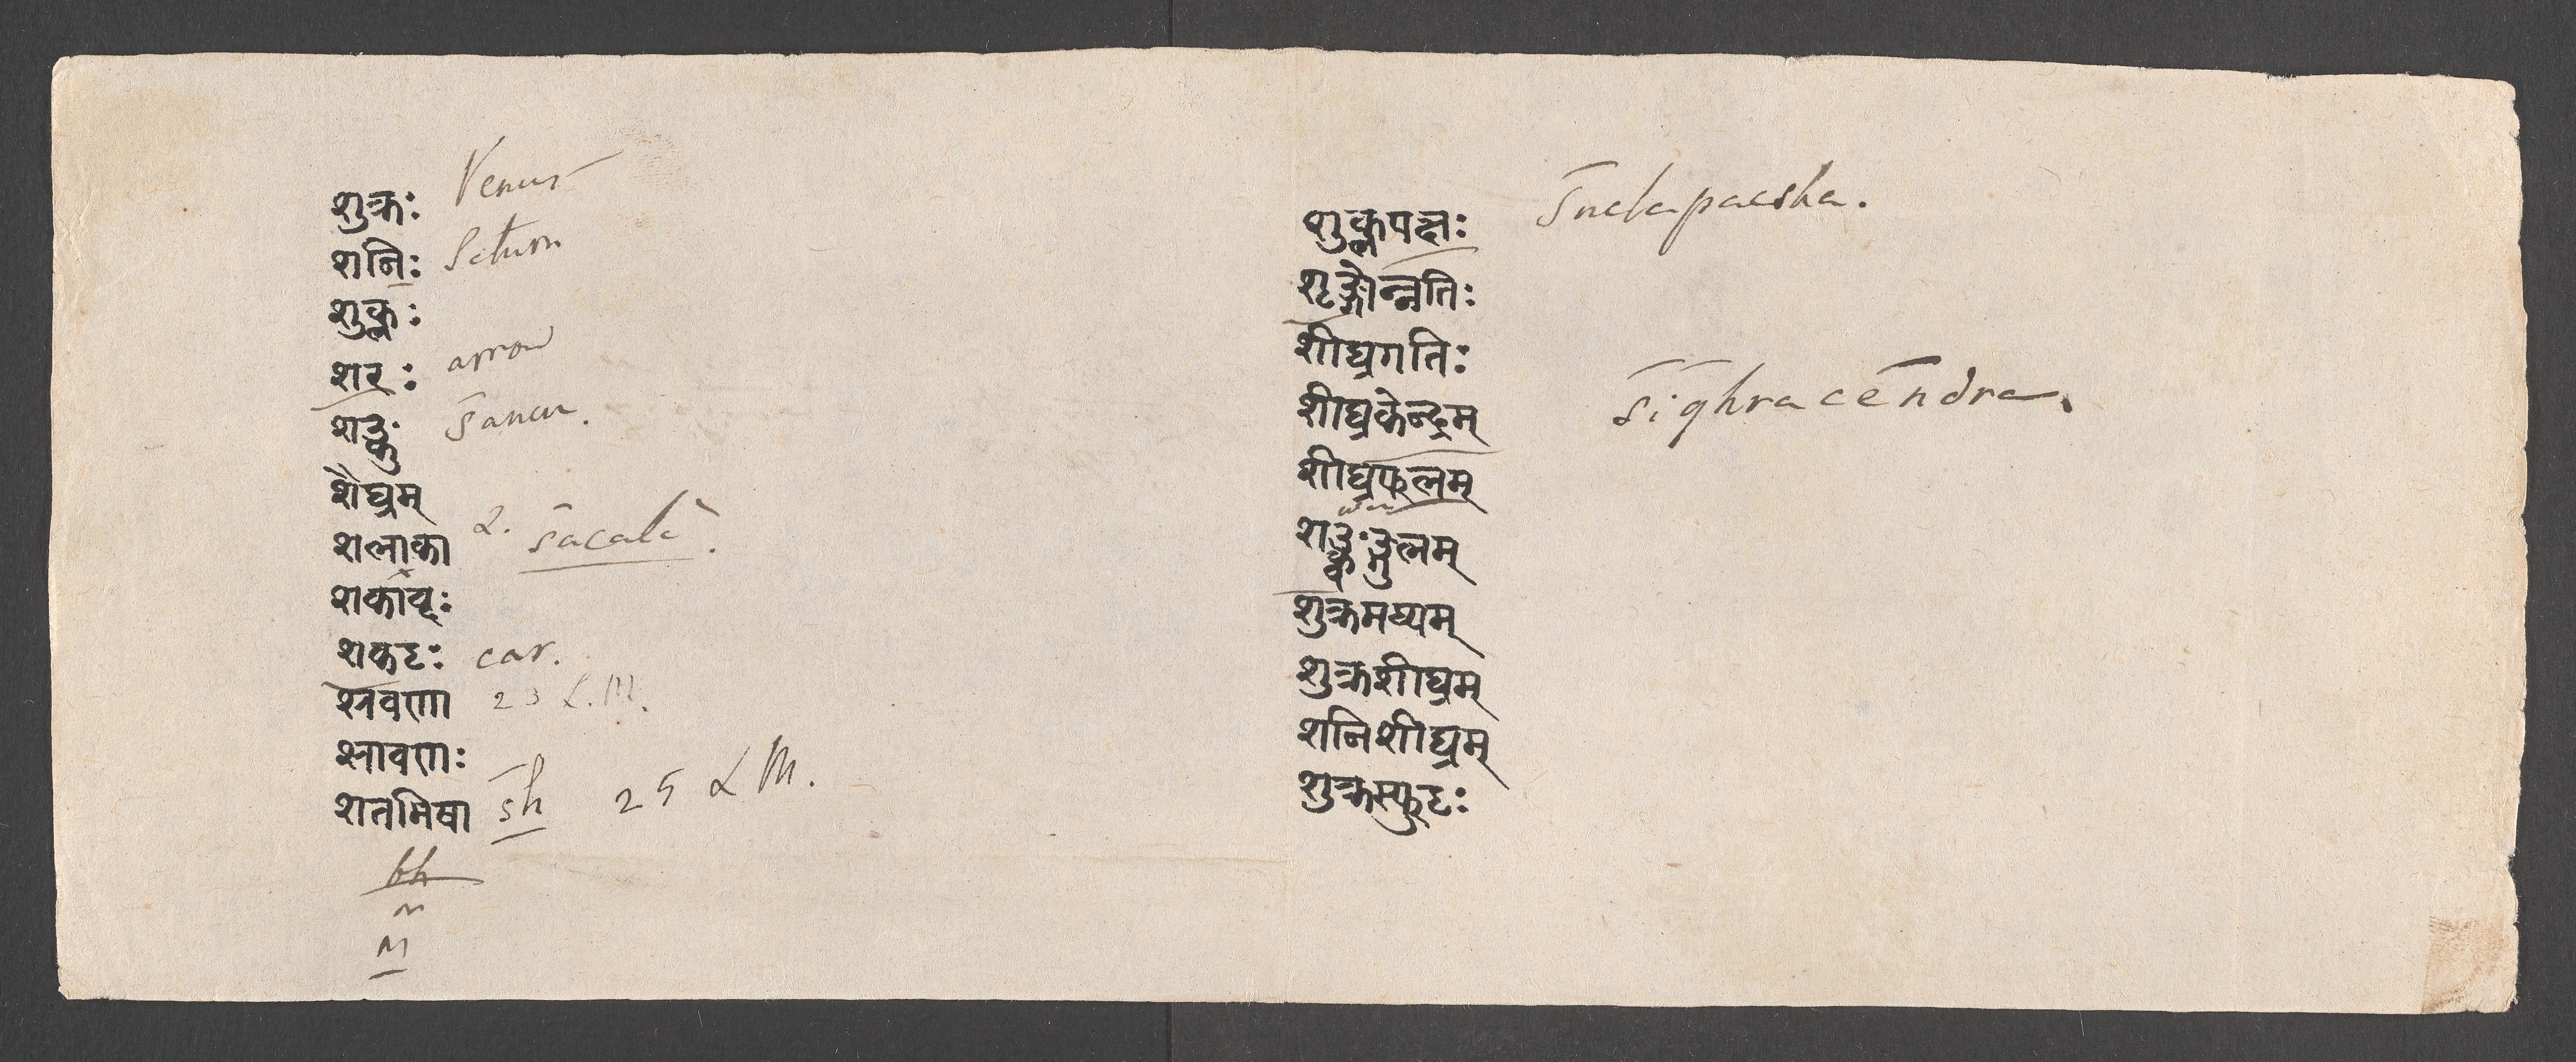 शुक्रः Venus
शनिः Saturn
शुक्लः
शरः arrow
शङ्कुः Sancu.
शैघ्रम्
शलाका 2. sacala.
शकाव्दः
शकटः car.
श्रवणा 23 L.M.
श्रावणः
शतभिषा sh 25 L M.
bh
m
M
शुक्लपक्षः Suclapacsha.
शृङ्गोन्नतिः
शीघ्रगतिः
शीघ्रकेन्द्रम् Sighracendra.
शीघ्रफलम्
शङ्क्वङ्गुलम्
शुक्रमध्यम्
शुक्रशीघ्रम्
शनिशीघ्रम्
शुक्रस्फुटः